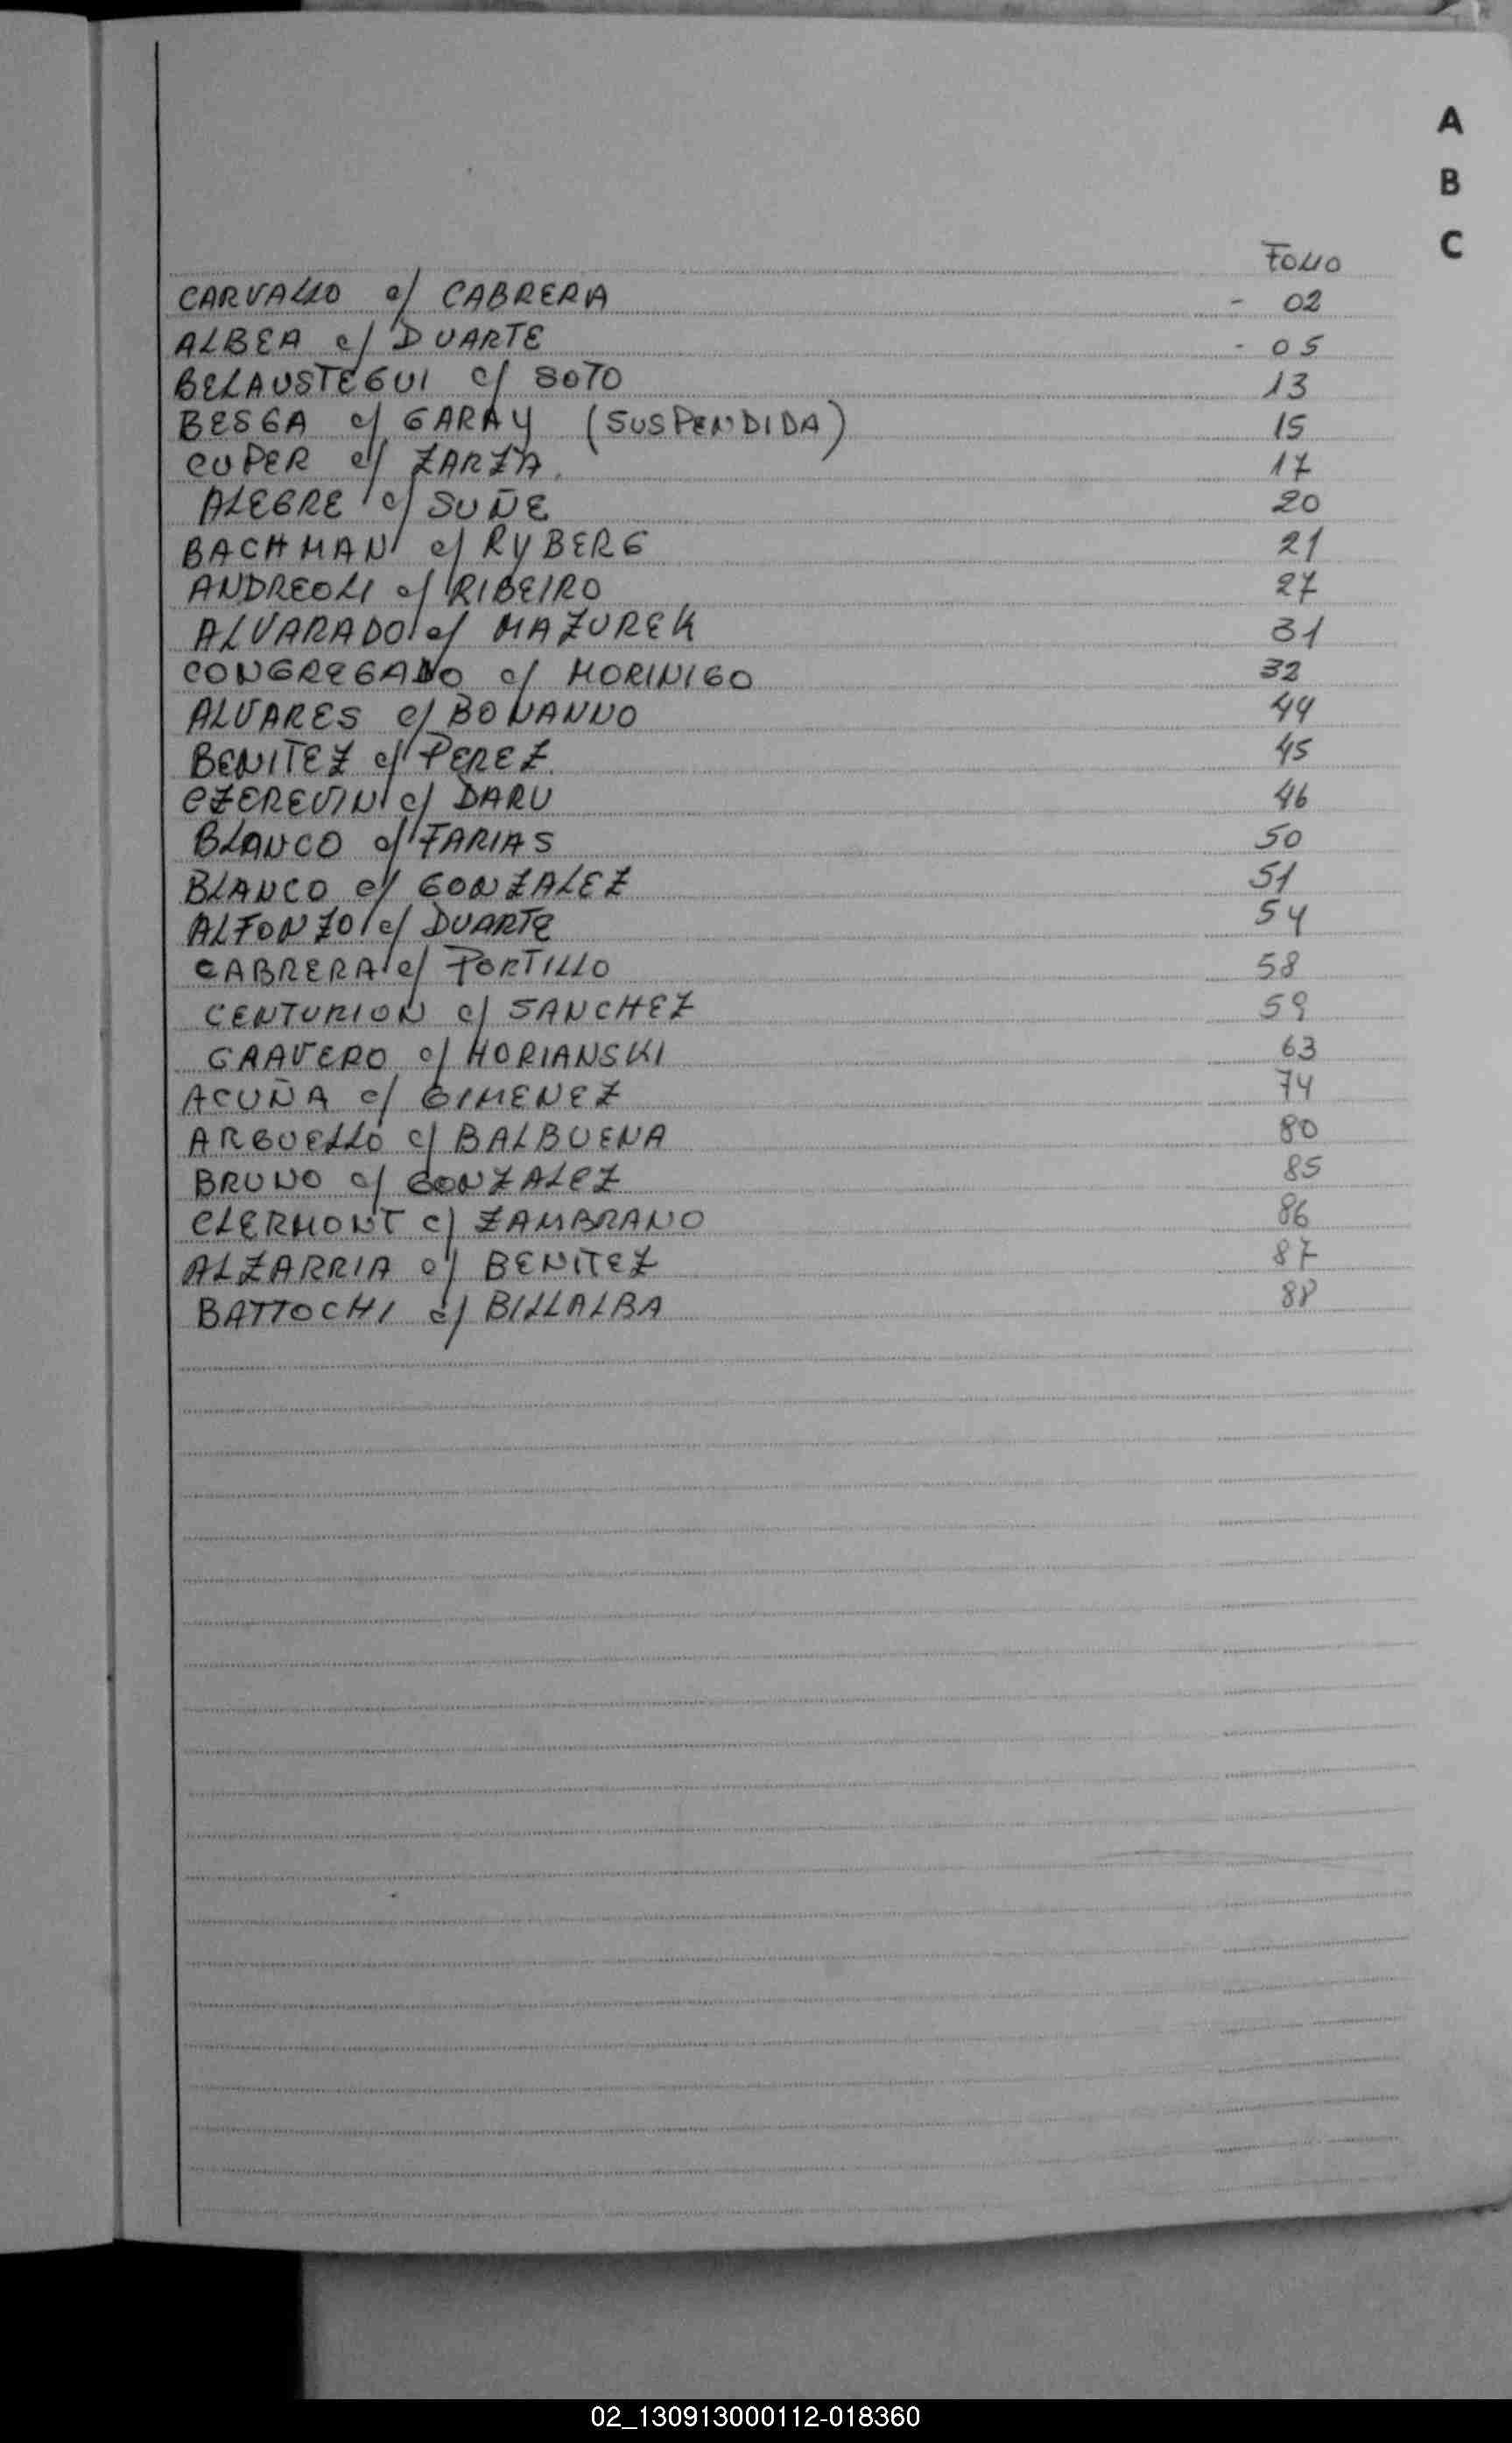 A
B
C
FOLIO
CARVALLO c/ CABRERA - 02
ALBEA c/ DUARTE - 05
BELAUSTEGUI c/ SOTO 13
BESGA c/ GARAY (SUSPENDIDA) 15
CUPER c/ ZARZA 17
ALEGRE c/ SUÑE 20
BACHMAN c/ RYBERG 21
ANDREOLI c/ RIBEIRO 27
ALVARADO c/ MAZUREK 31
CONGREGADO c/ MORINIGO 32
ALVARES c/ BONANNO 44
BENITEZ c/ PEREZ 45
CZEREVIN c/ DARU 46
BLANCO c/ FARIAS 50
BLANCO c/ GONZALEZ 51
ALFONZO c/ DUARTE 54
CABRERA c/ PORTILLO 58
CENTURION c/ SANCHEZ 59
c/ HORIANSKI 63
ACUÑA c/ GIMENEZ 74
ARGUELLO c/ BALBUENA 80
BRUNO c/ GONZALEZ 85
CLERMONT c/ ZAMBRANO 86
ALZARRIA c/ BENITEZ 87
BATTOCHI c/ BILLALBA 88
02_130913000112-018360